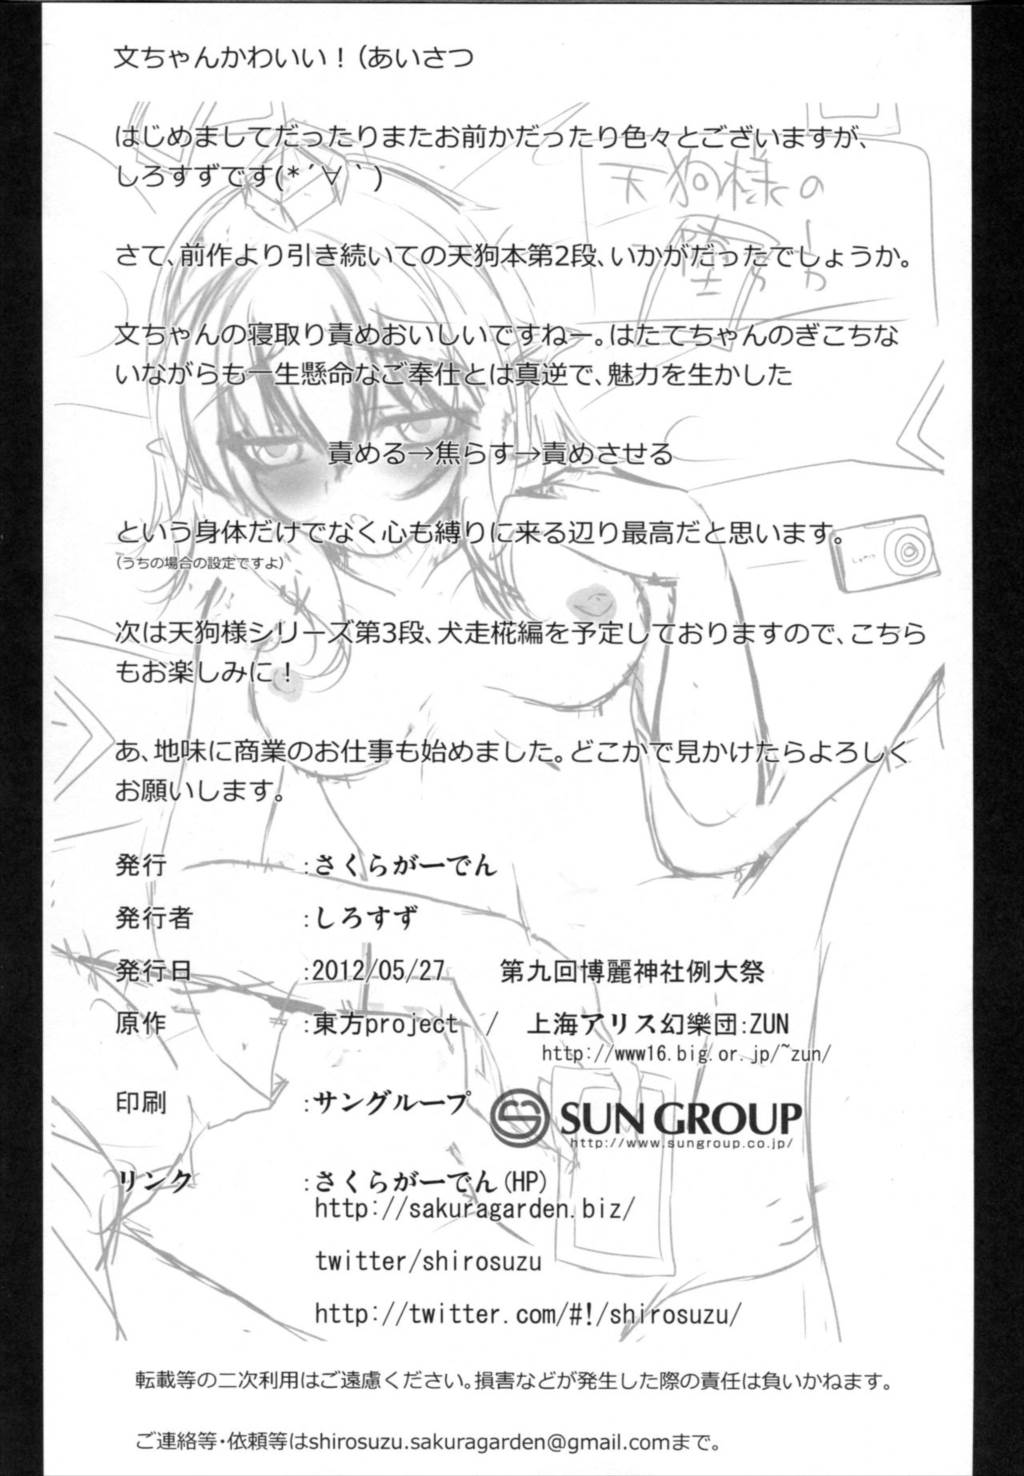 文ちゃんかわいい！(あいさつ
はじめましてだったりまたお前かだったり色々とございますが、
しろすずです(*´∀｀)
天狗様の
さて、前作より引き続いての天狗本第2段、いかがだったでしょうか。
文ちゃんの寝取り責めおいしいですねー。はたてちゃんのぎこちな
いながらも一生懸命なご奉仕とは真逆で、魅力を生かした
責める→焦らす→責めさせる
という身体だけでなく心も縛りに来る辺り最高だと思います。
(うちの場合の設定ですよ)
次は天狗様シリーズ第3段、犬走椛編を予定しておりますので、こちら
もお楽しみに！
あ、地味に商業のお仕事も始めました。どこかで見かけたらよろしく
お願いします。
発行 :さくらがーでん
発行者 :しろすず
発行日 :2012/05/27 第九回博麗神社例大祭
原作 :東方project / 上海アリス幻樂団:ZUN
http://www16.big.or.jp/~zun/
印刷 :サングループ SUN GROUP
http://www.sungroup.co.jp/
リンク :さくらがーでん(HP)
http://sakuragarden.biz/
twitter/shirosuzu
http://twitter.com/#!/shirosuzu/
転載等の二次利用はご遠慮ください。損害などが発生した際の責任は負いかねます。
ご連絡等・依頼等はshirosuzu.sakuragarden@gmail.comまで。